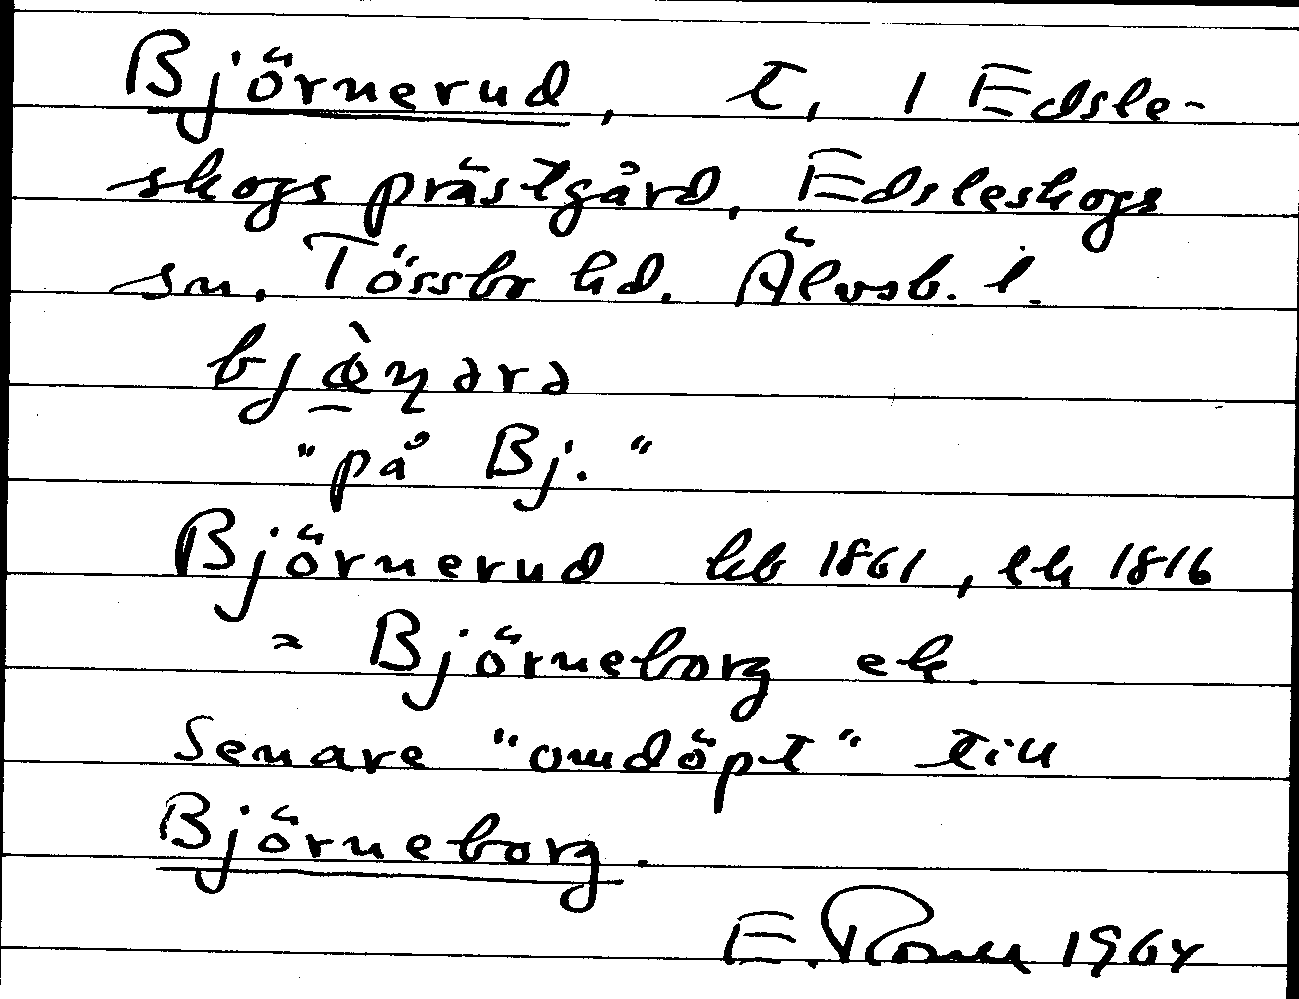 Björnerud, t, 1 Edsle-
skogs prästgård, Edsleskogs
sn, Tössbo hd. Älvsb. l.
"på Bj."
Björnerud hb 1861, lh 1816
= Björneborg ek
Senare "omdöpt" till
Björneborg.
E. 1964